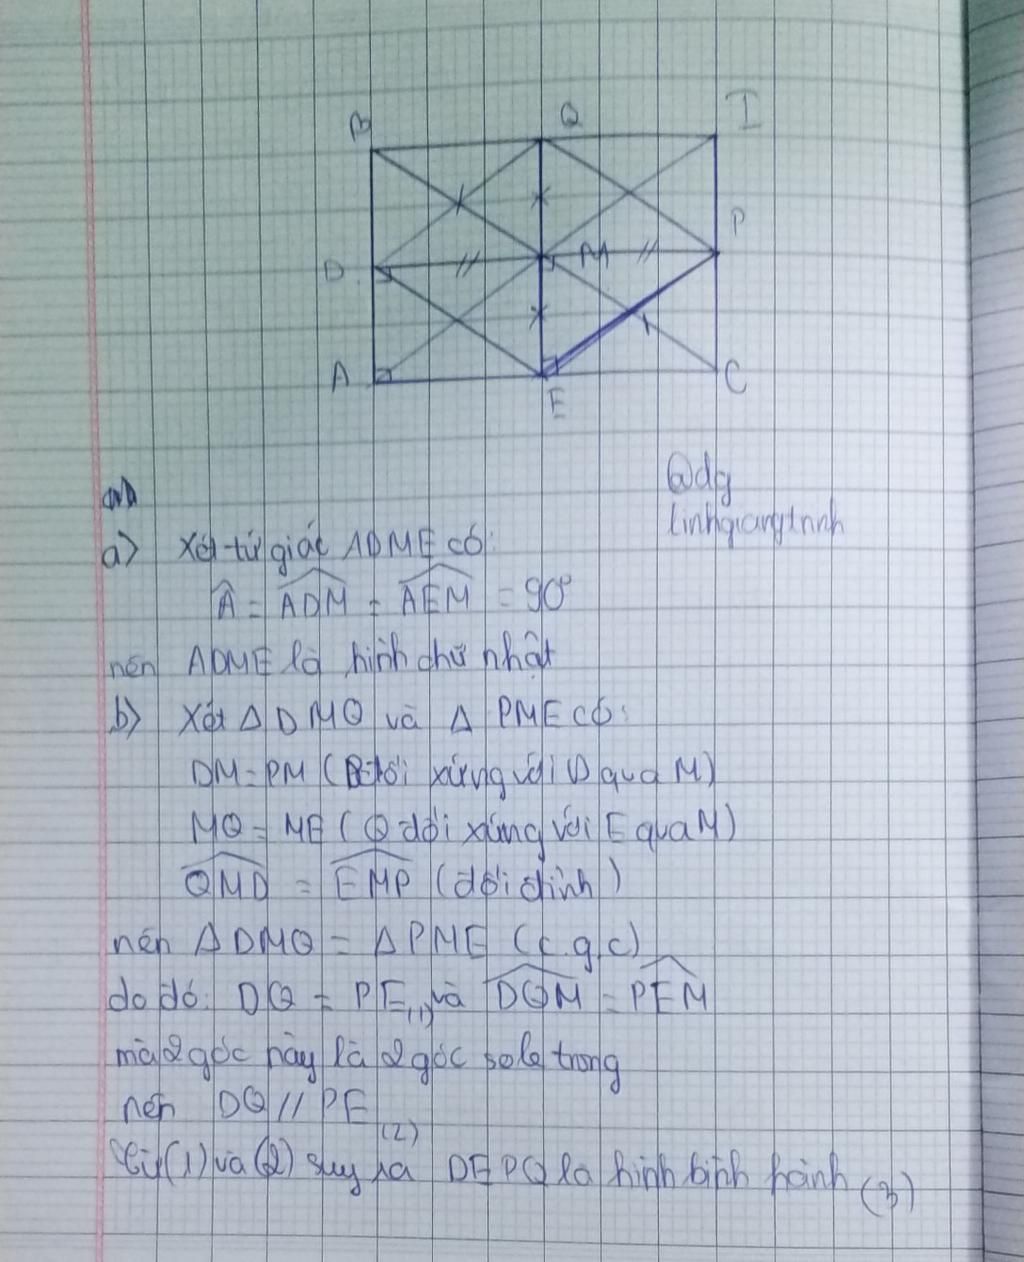 B Q I
D M P
A E C
@dg
linhgiangtrnh
a) Xét tứ giác ADME có:
Â = ADM = AEM = 90°
nên ADME là hình chữ nhật
b) Xét Δ DMQ và Δ PME có:
DM = PM (P đối xứng với D qua M)
MQ = ME (Q đối xứng với E qua M)
QMD = EMP (đối đỉnh)
nên Δ DMQ = Δ PME (c.g.c)
do đó: DQ = PE (1) và DQM = PEM
mà 2 góc này là 2 góc sole trong
nên DQ // PE (2)
Từ (1) và (2) suy ra DEPQ là hình bình hành (3)